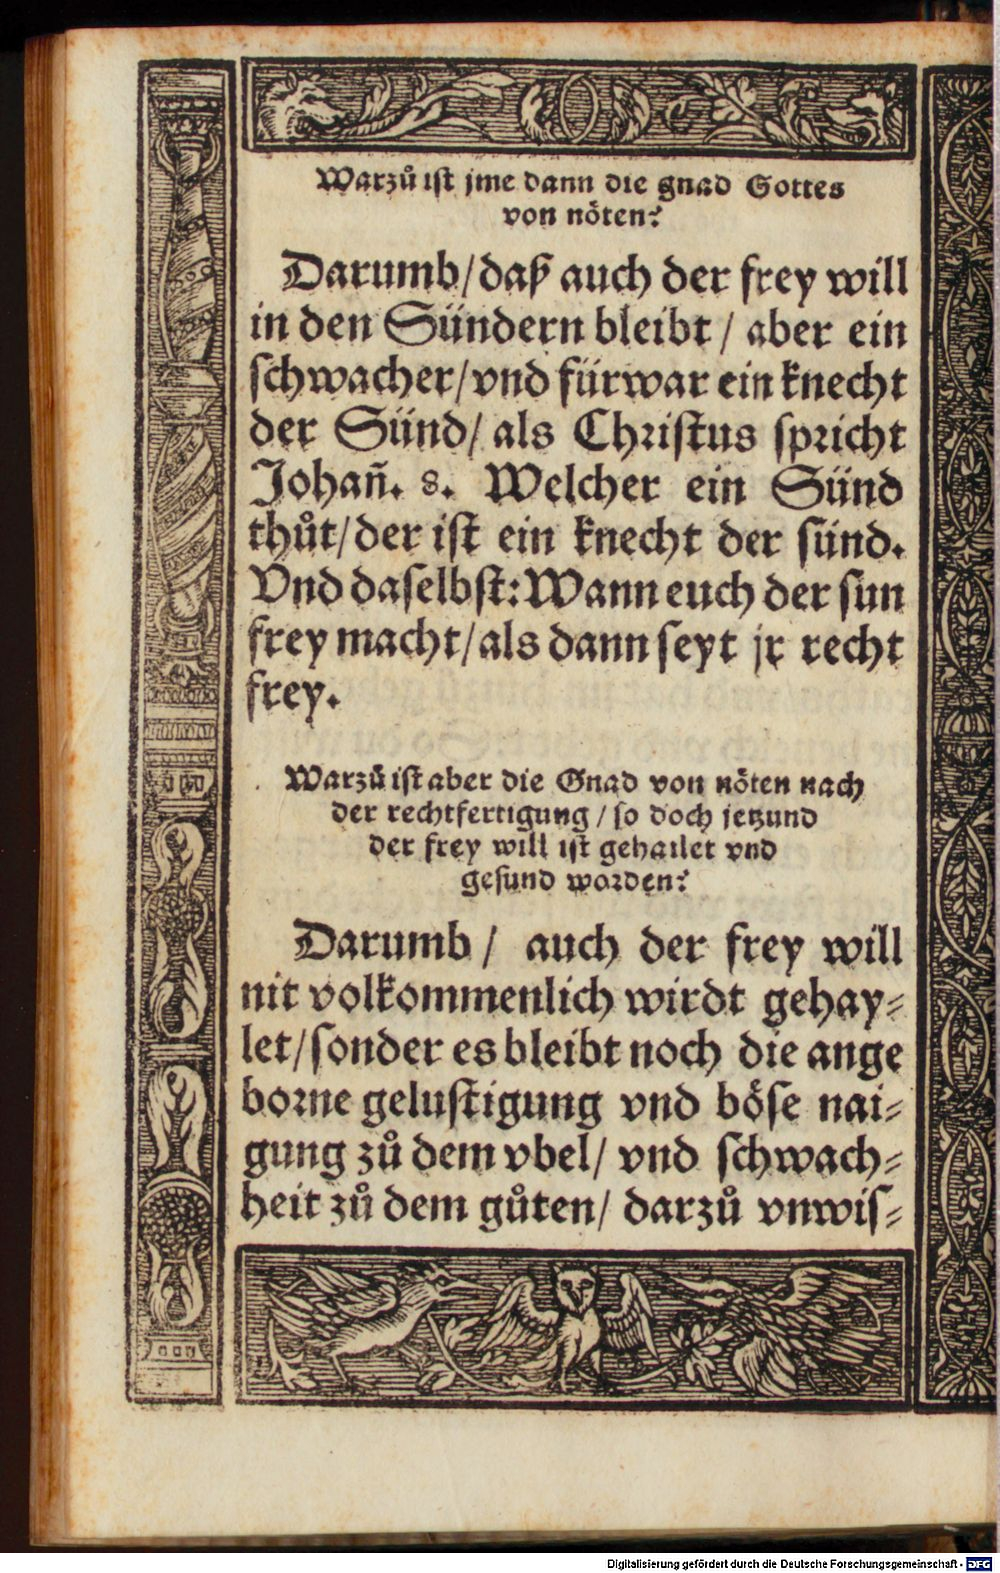 Warzů ist jme dann die gnad Gottes
von nöten?
Darumb / daß auch der frey will
in den Sündern bleibt / aber ein
schwacher / vnd fürwar ein knecht
der Sünd / als Christus spricht
Johañ. 8. Welcher ein Sünd
thůt / der ist ein knecht der sünd.
Vnd daselbst: Wann euch der sun
frey macht / als dann seyt jr recht
frey.
Warzů ist aber die Gnad von nöten nach
der rechtfertigung / so doch jetzund
der frey will ist gehailet vnd
gesund worden?
Darumb / auch der frey will
nit volkommenlich wirdt gehay⸗
let / sonder es bleibt noch die ange
borne gelustigung vnd böse nai⸗
gung zů dem vbel / vnd schwach⸗
heit zů dem gůten / darzů vnwis⸗
Digitalisierung gefördert durch die Deutsche Forschungsgemeinschaft - DFG